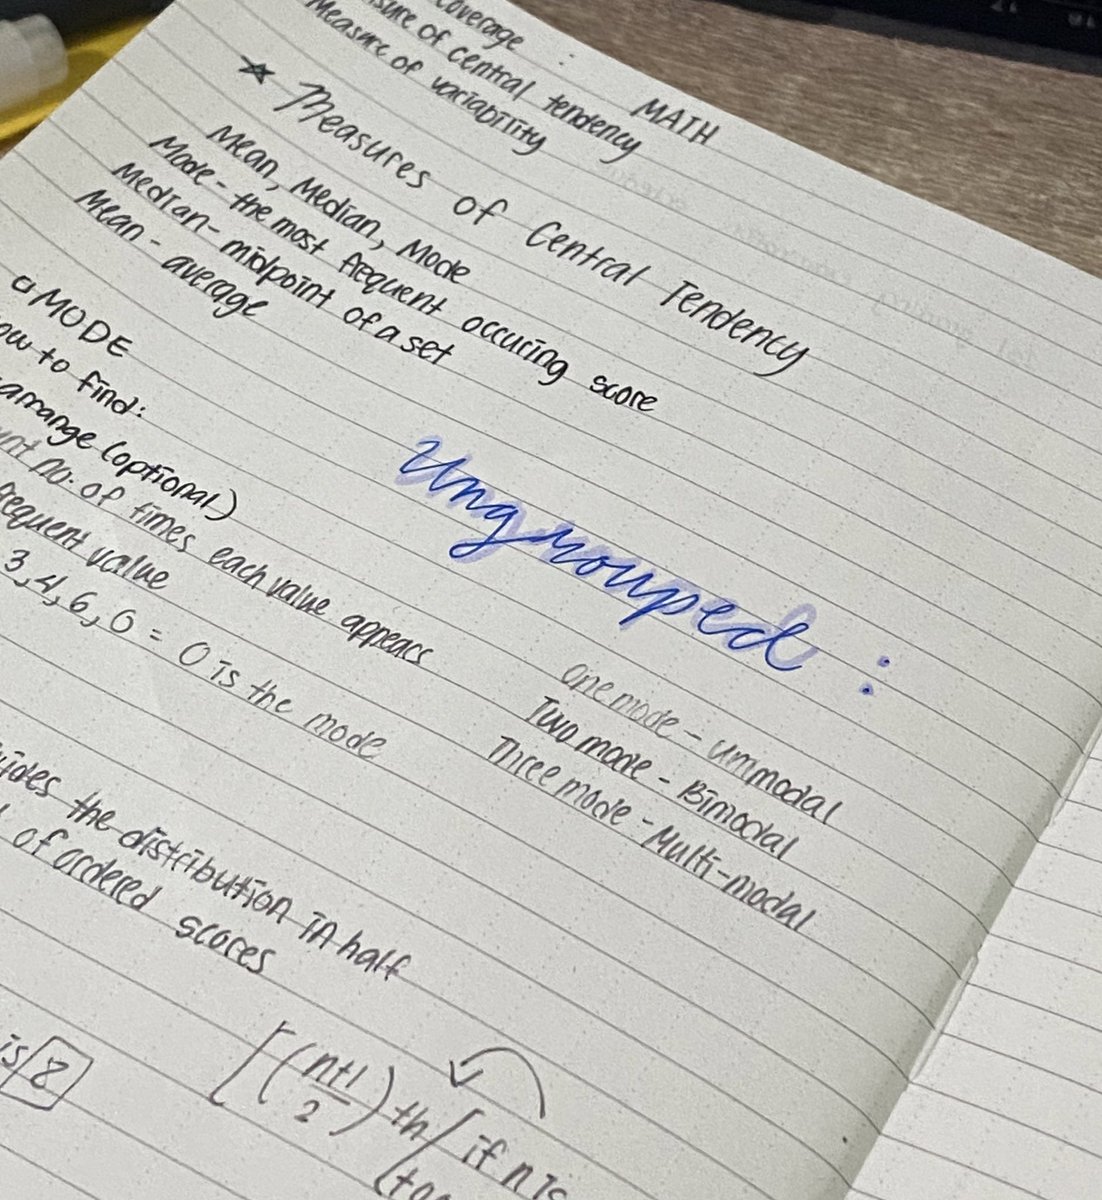 coverage :
MATH
of central tendency
Measure of variability
Measures of Central Tendency
Mean, Median, Mode
Mode - the most frequent occuring score
Median - midpoint of a set
Mean - average
MODE
to find:
arrange (optional)
no. of times each value appears
frequent value
3, 4, 6, 0 = 0 is the mode
Ungrouped :
One mode - Unimodal
Two mode - Bimodal
Three mode - Multi-modal
the distribution in half
of ordered scores
is 8
[(n+1/2)th if n is